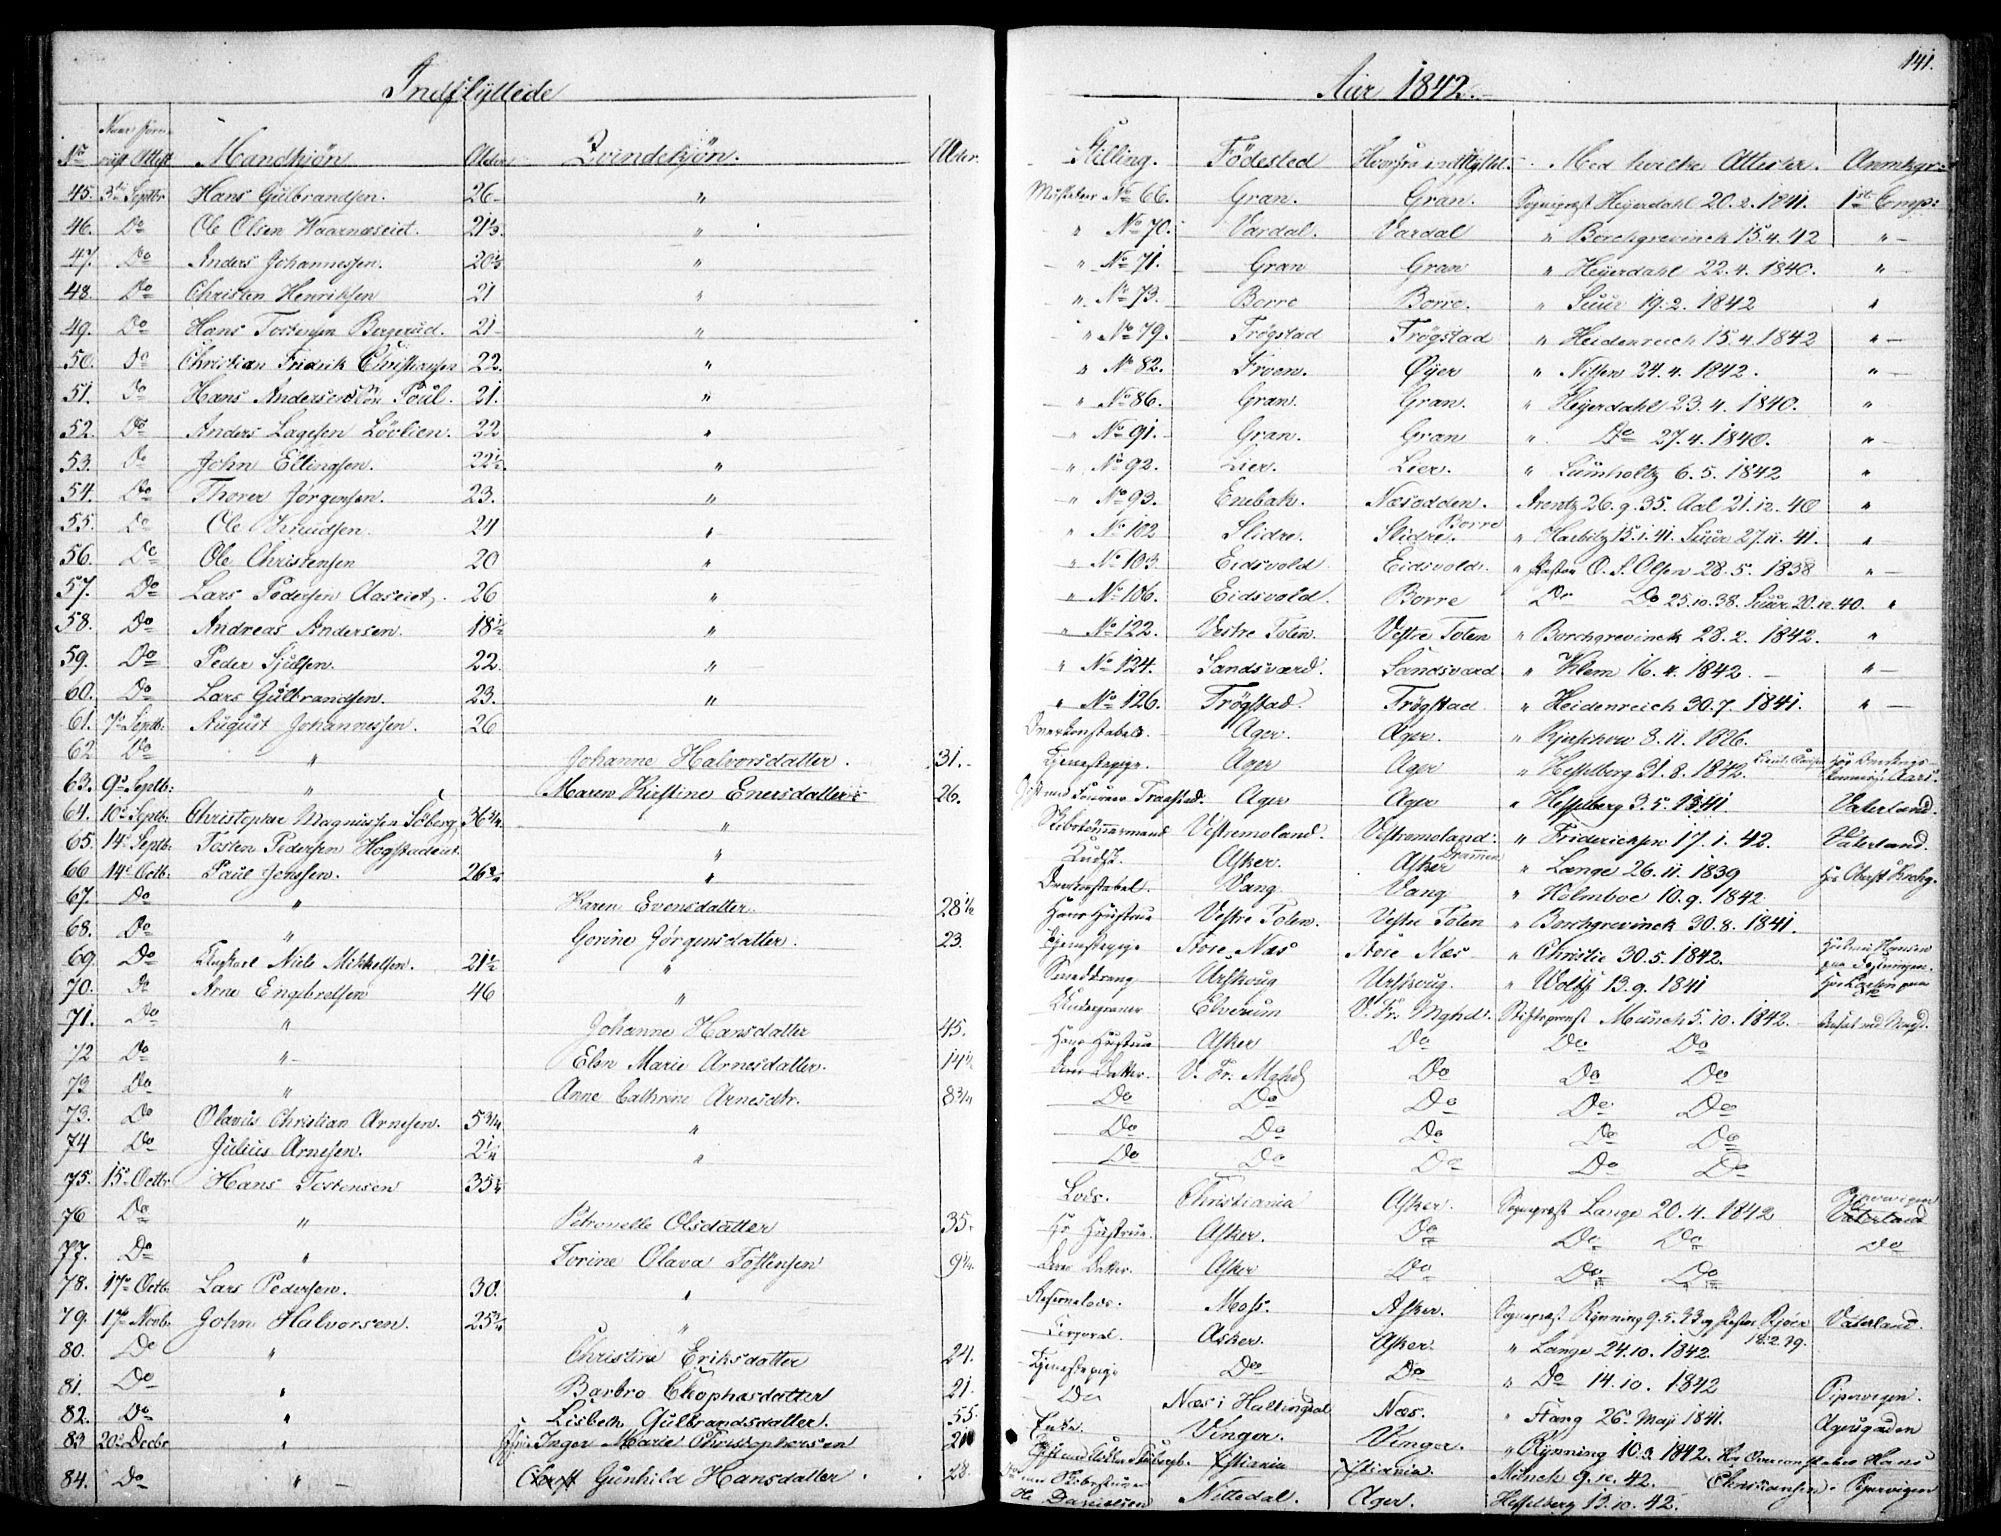 141.
Indflyttede
Aar 1842.
No
Mandkjön
Alder
Qvindekjön.
Alder.
Stilling.
Födested
Hvorfra indflyttet
Med hvilke Attester.
Anmkgr:
45. 3die Septbr Hans Gulbrandsen. 26 " Musketeer No 66. Gran. Gran. Sognepræst Heyerdahl 20.2.1841. 1ste Comp:
46. Do Ole Olsen 21 " " No 70. Vardal. Vardal " Borchgrevinck 15.4.42 " -
47. Do Anders Johannessen. 20 1/2 " " No 71. Gran Gran " Heyerdahl 22.4.1840. "
48. Do Christen Henriksen 21 " " No 73. Borre Borre. " Suur 19.2.1842 "
49. Do Hans Tostensen Bergerud. 21 " " No 79. Trögstad Trögstad " Heidenreich 15.4.1842 " -
50. Do Christian Fridrik Christiansen 22. " " No 82. Froen. Öyer " Nilsen 24.4.1842. " -
51. Do Hans Andersen 21. " " No 86. Gran. Gran. " Heyerdahl 23.4.1840. "
52. Do Anders Lagesen Lövlien. 22 " " No 91. Gran. Gran " Do 27.4.1840. " -
53. Do John Ellingsen. 22 1/2. " " No 92. Lier. Lier. " Sumholtz 6.5.1842 "
54. Do Thorer Jørgensen. 23. " " No 93. Enebak. Næsodden. Arentz 26.9.35. Aal 21.12.40 "
55. Do Ole Knudsen. 24 " " No 102 Slidre. Slidre. Borre " Harbitz 15.1.41. Suur 27.11.41. "
56. Do Ole Christensen 20 " " No 103. Eidsvold Eidsvold. " Pastor O. S. Olsen 28.5.1838 " -
57. Do Lars Pedersen Aaseiet. 26 " " No 106. Eidsvold. Borre Do Do 25.10.38. Suur 20.12.40. "
58. Do Andreas Andersen. 18 1/2 " " No 122. Vestre Toten. Vestre Toten " Borchgrevinck 28.2.1842. "
59. Do Peder Sjulsen. 22. " " No 124. Sandsværd. Sandsværd " Klem 16.4.1842. " -
60. Do Lars Gulbrandsen. 23. " " No 126. Trögstad. Trögstad " Heidenreich 30.7.1841. " -
61. 7de Septb: August Johannessen. 26 Overkonstabel. Ager. Ager. " 3.11.1826.
62 Do " Johanne Halvorsdatter. 31. Tjenestepige. Ager Ager " Hesselberg 31.8.1842.
63. 9de Septb: " Maren Kirstine Enersdatter 26. Ager Ager " Hesselberg 3.5.1841 Vaterland.
64. 10de Septb: Christopher Magnussen Söberg 36 3/4 " Skibstömmermand Vestremoland. Vestremoland. " Friderichsen 17.1.42. Vaterland.
65. 14de Septb: Tosten Pedersen Hogstadeiet " Kudsk. Asker. Asker Drammen " Lange 26.11.1839
66 14de Octb: Paul Jenssen. 26 3/4 " Overkonstabel. Vang Vang " Holmboe 10.9.1842
67. Do " Karen Evensdatter. 28 1/2 Hans Hustrue Vestre Toten. Vestre Toten " Borchgrevinck 30.8.1841.
68. Do " Gorine Jørgensdatter. 23. Tjenestepige Næs Næs " Christie 30.5.1842.
69 Do Niels Mikkelsen. 21 1/2 " Smeddreng Urskoug Urskoug. " Wolff 13.9.1841
70. Do Arne Engebretsen 46 " Elverum V. Fr. Mghd. Stiftsprovst Munch 5.10.1842.
71. Do " Johanne Hansdatter 45. Hans Hustrue Asker Do Do Do
72 Do " Elen Marie Arnesdatter. 14 1/2 Deres Datter. V. Fr. Mghd Do Do Do
73 Do " Anne Cathrine Arnesdtr. 8 3/4 Do Do Do Do Do
73. Do Olavus Christian Arnesen. 5 3/4 " Do Do Do Do Do
74 Do Julius Arnesen. 2 1/4 " Do Do Do Do Do
75. 15de Octb: Hans Tostensen 35 Lods. Christiania Asker. Sognepræst Lange 20.4.1842 Pipervigen Vaterland
76 Do " Petronelle Olsdatter 35. Hs Hustrue. Asker. Do Do Do Do
77. Do " Torine Olava Tostensen 9 1/4 Deres Datter. Asker Do Do Do
78. 17de Octb: Lars Pedersen. 30. " Reservelods. Moss. Asker. Sognepræst Rynning 9.5.33 og Pastor 18.2.39. Vaterland.
79. 17de Novb: John Halvorsen. 25 3/4 " Corporal. Asker. Asker. " Lange 24.10.1842
80. Do " Christine Eriksdatter 24. Tjenestepige Do Do " Do 14.10.1842 Pipervigen.
81. Do " Barbro Cleophasdatter 21. Do Næs i Hallingdal Næs. " Stang 26de Maji 1841. Agersgaden
82. Do " Lisbeth Gulbrandsdatter. 55. Enke. Vinger. Vinger. " Rynning 10.3.1842. Hos Overconstabel Hans Christiansen. Pipervigen
83 20de Decbr " Inger Marie Christophersen Xstiania Xstiania. Munch 9.12.42.
84. Do " Gunhild Hansdatter. 28. Ole Danielsen Nittedal. Ager. Hesselberg 13.10.42.